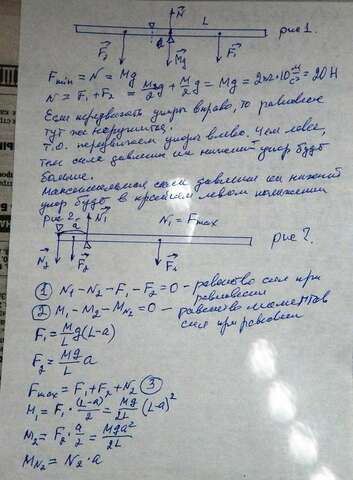 N L
a
F₂ Mg F₁ рис 1.
Fmin = N = Mg
N = F₁ + F₂ = M/2 g + M/2 g = Mg = 2кг·10 м/с² = 20Н
Если передвигать упоры вправо, то равновесие
тут же нарушится.
т.о. передвигаем упоры влево. Чем левее,
тем сила давления на нижний упор будет
больше.
Максимальная сила давления на нижний
упор будет в крайнем левом положении
рис 2. N₁ N₁ = Fmax
a
N₂ F₂ F₁ рис 2.
① N₁ - N₂ - F₁ - F₂ = 0 - равенство сил при
равновесии
② M₁ - M₂ - MN₂ = 0 - равенство моментов
сил при равновесии
F₁ = M/L g(L-a)
F₂ = Mg/L a
Fmax = F₁ + F₂ + N₂ ③
M₁ = F₁ · (L-a)/2 = Mg/2L (L-a)²
M₂ = F₂ · a/2 = Mga²/2L
MN₂ = N₂ · a